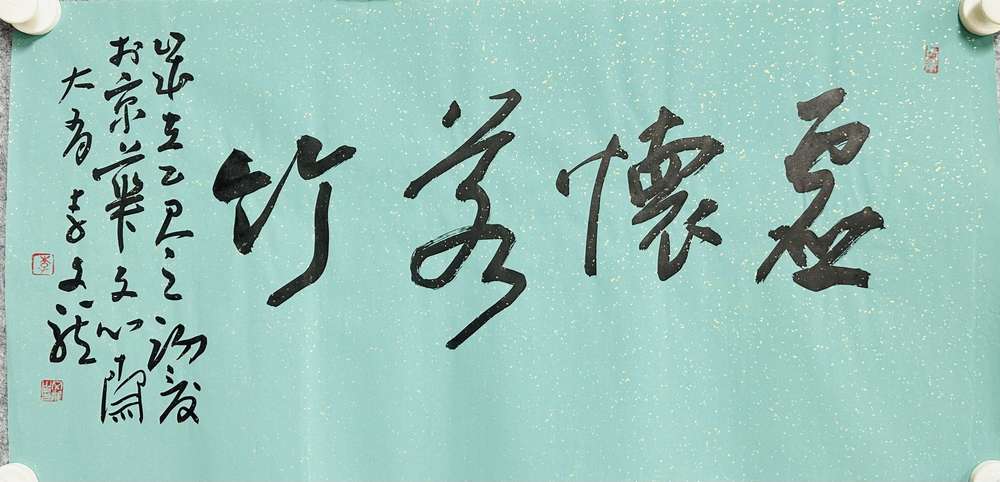 虚懷若竹
歲在乙巳之初夏
於京華文心閣
大有李文龍